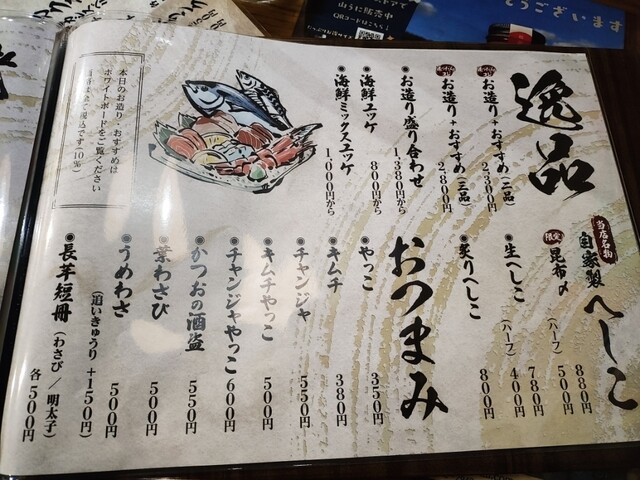 逸品
お造り・おすすめ(二品)
2,300円
お造り・おすすめ(三品)
2,800円
お造り盛り合わせ
1,380円から
海鮮ユッケ
800円から
海鮮ミックスユッケ
1,600円から
本日のお造り・おすすめは
ホワイトボードをご覧ください
税込です(10%)
当店名物
自家製
へしこ
880円
限定
昆布〆
(ハーフ)
500円
生へしこ
780円
(ハーフ)
400円
炙りへしこ
800円
おつまみ
やっこ
350円
キムチ
380円
チャンジャ
550円
キムチやっこ
500円
チャンジャやっこ
600円
かつおの酒盗
550円
葉わさび
500円
うめわさ
500円
(追いきゅうり +150円)
長芋短冊
(わさび/明太子)
各500円
うございます
山うに販売中
QRコードはこちら